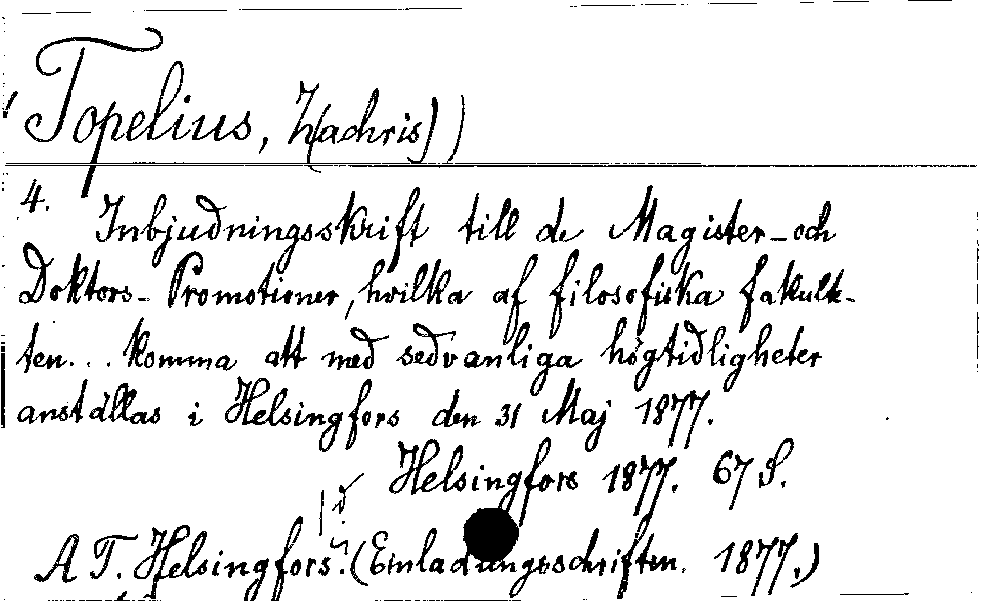 Topelius, Z(achris))
4. Inbjudningsskrift till de Magister-och
Doktors-Promotioner, hvilka af filosofiska fakulte-
ten... komma att med sedvanliga högtidligheter
anställas i Helsingfors den 31 Maj 1877.
Helsingfors 1877. 67 S.
A T. Helsingfors. (Einladungsschriften. 1877.)